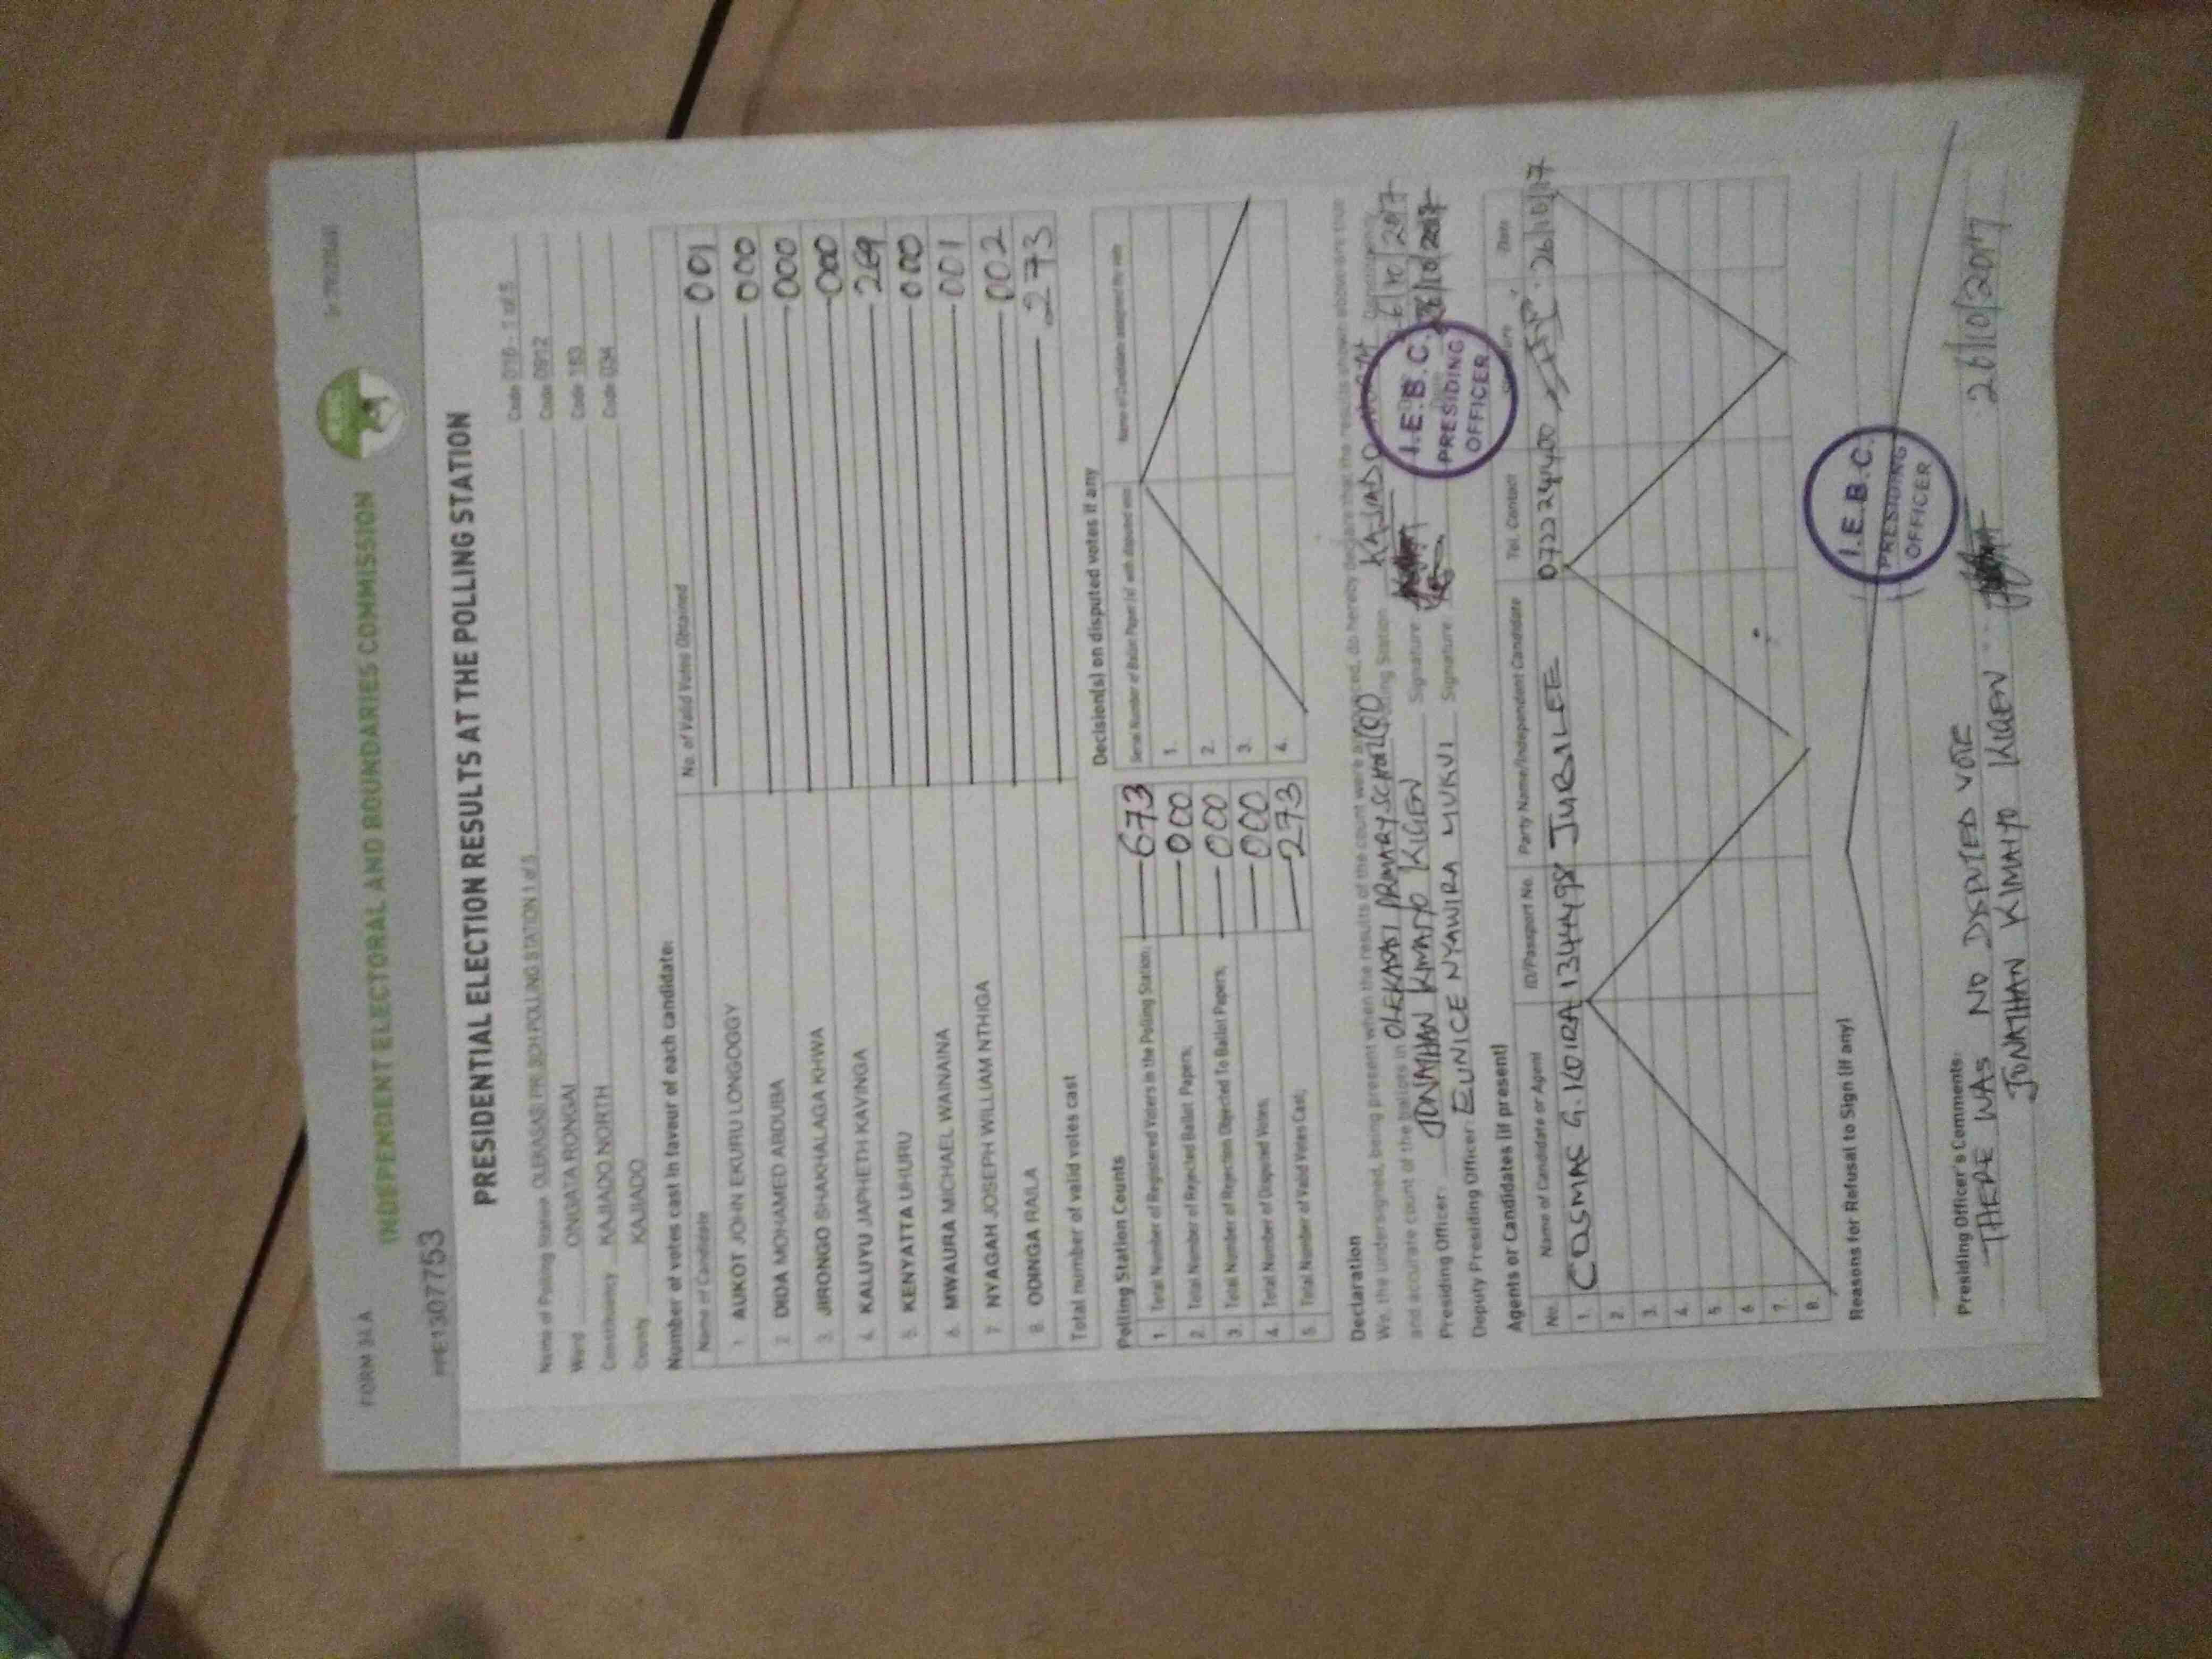 FORM 34A
INDEPENDENT ELECTORAL AND BOUNDARIES COMMISSION
PRE1307753
PRESIDENTIAL ELECTION RESULTS AT THE POLLING STATION
Name of Polling Station OLEKASASI PRI SCH POLLING STATION 1 of 5 Code 016 - 1 of 5
Ward ONGATA RONGAI Code 0912
Constituency KAJIADO NORTH Code 183
County KAJIADO Code 034
Number of votes cast in favour of each candidate:
Name of Candidate No. of Valid Votes Obtained
1 AUKOT JOHN EKURU LONGOGGY 001
2 DIDA MOHAMED ABDUBA 000
3. JIRONGO SHAKHALAGA KHWA 000
4. KALUYU JAPHETH KAVINGA 000
5. KENYATTA UHURU 269
6. MWAURA MICHAEL WAINAINA 000
7 NYAGAH JOSEPH WILLIAM NTHIGA 001
8. ODINGA RAILA 002
Total number of valid votes cast 273
Polling Station Counts
1. Total Number of Registered Voters in the Polling Station; 673
2. Total Number of Rejected Ballot Papers; 000
3. Total Number of Rejection Objected To Ballot Papers; 000
4. Total Number of Disputed Votes; 000
5. Total Number of Valid Votes Cast; 273
Decision(s) on disputed votes if any
Serial Number of Ballot Paper (s) with disputed votes Name of Candidate assigned the vote
1.
2.
3.
4.
Declaration
We, the undersigned, being present when the results of the count were announced, do hereby declare that the results shown above are true
and accurate count of the ballots in OLEKASASI PRIMARY SCHOOL Polling Station KAJIADO
Presiding Officer: JONATHAN KIMAIYO KIGEN Signature 26/10/2017
Deputy Presiding Officer: EUNICE NYAWIRA Signature 26/10/2017
I.E.B.C. PRESIDING OFFICER
Agents or Candidates (if present)
No. Name of Candidate or Agent ID/Passport No. Party Name/Independent Candidate Tel. Contact Signature Date
1. COSMAS G. 13444498 JUBILEE 26/10/17
2.
3.
4.
5.
6.
7.
8.
Reasons for Refusal to Sign (if any)
I.E.B.C. PRESIDING OFFICER
Presiding Officer's Comments:
THERE WAS NO DISPUTED VOTE
JONATHAN KIMAIYO KIGEN 26/10/2017